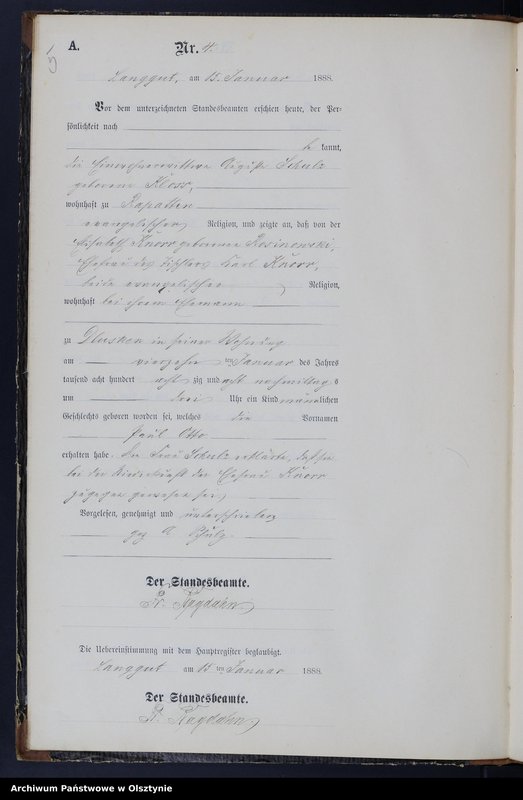 5
A.
Nr. 4.
Langgut, am 15. Januar 1888.
Vor dem unterzeichneten Standesbeamten erschien heute, der Per-
sönlichkeit nach
be kannt,
die Einwohnerwittwe Schulz
geborene Kloss,
wohnhaft zu
evangelischer Religion, und zeigte an, daß von der
Knorr geborenen Rosinowski,
Ehefrau des Tischlers Karl Knorr,
beide evangelischer Religion,
wohnhaft bei ihrem Ehemann
zu in seiner Wohnung
am vierzehn ten Januar des Jahres
tausend acht hundert acht zig und acht nachmittag s
um drei Uhr ein Kind männlichen
Geschlechts geboren worden sei, welches die Vornamen
Paul Otto
erhalten habe. Die Frau Schulz erklärte, daß sie
bei der Niederkunft der Ehefrau Knorr
zugegen gewesen sei,
Vorgelesen, genehmigt und unterschrieben
gez A Schulz
Der Standesbeamte.
Die Uebereinstimmung mit dem Hauptregister beglaubigt.
Langgut am 15 ten Januar 1888.
Der Standesbeamte.
Archiwum Państwowe w Olsztynie